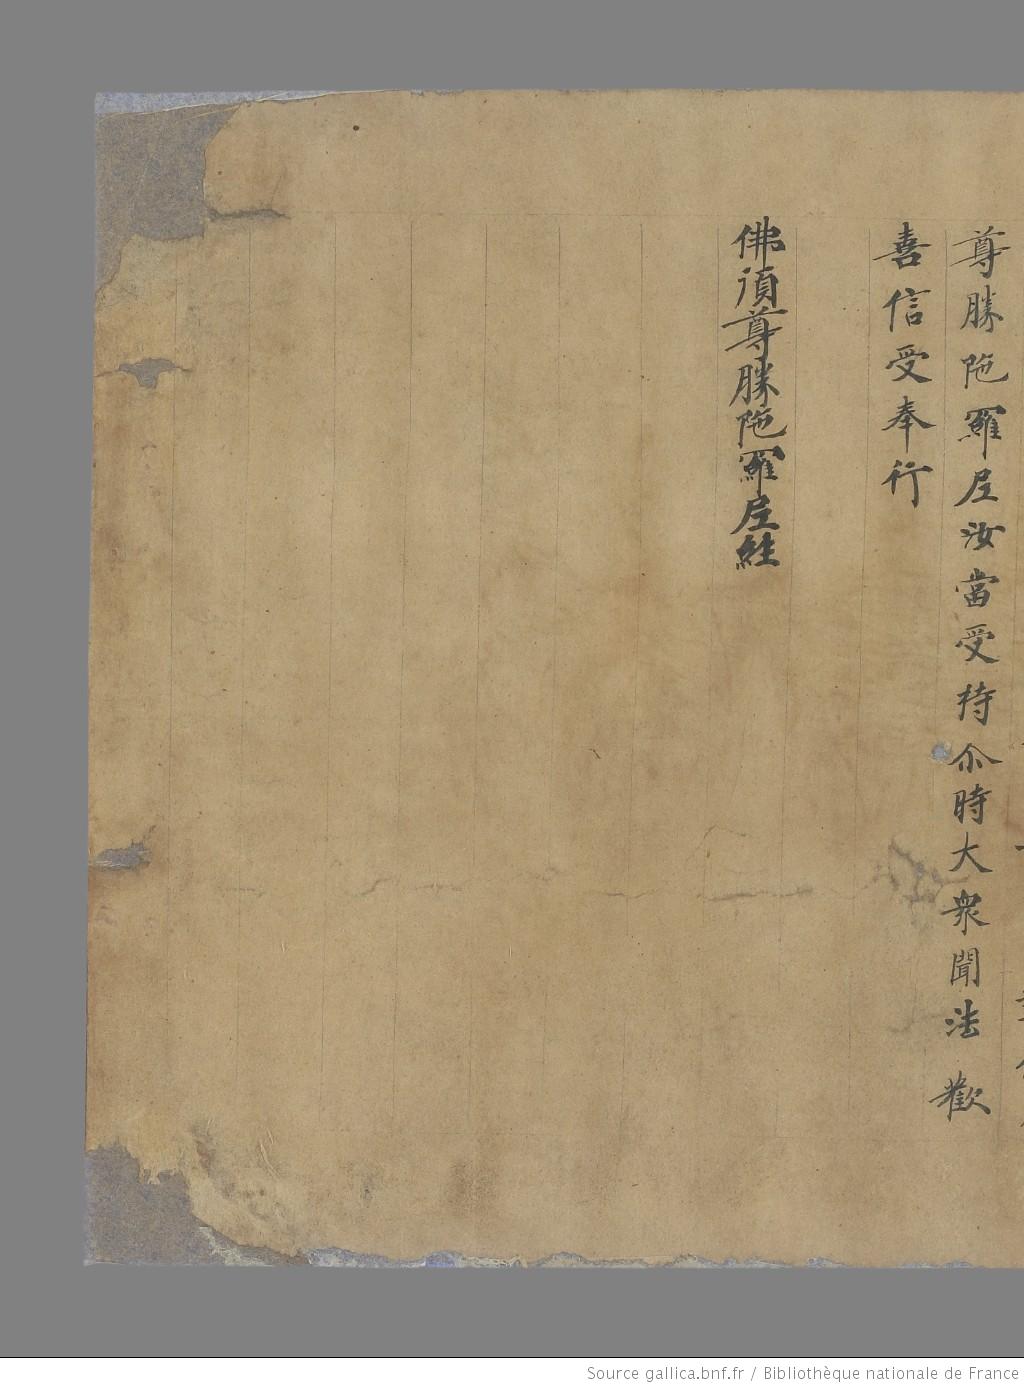 尊勝陁羅尼汝當受持尒時大衆聞法歡
喜信受奉行
佛頂尊勝陁羅尼經
Source gallica.bnf.fr / Bibliothèque nationale de France